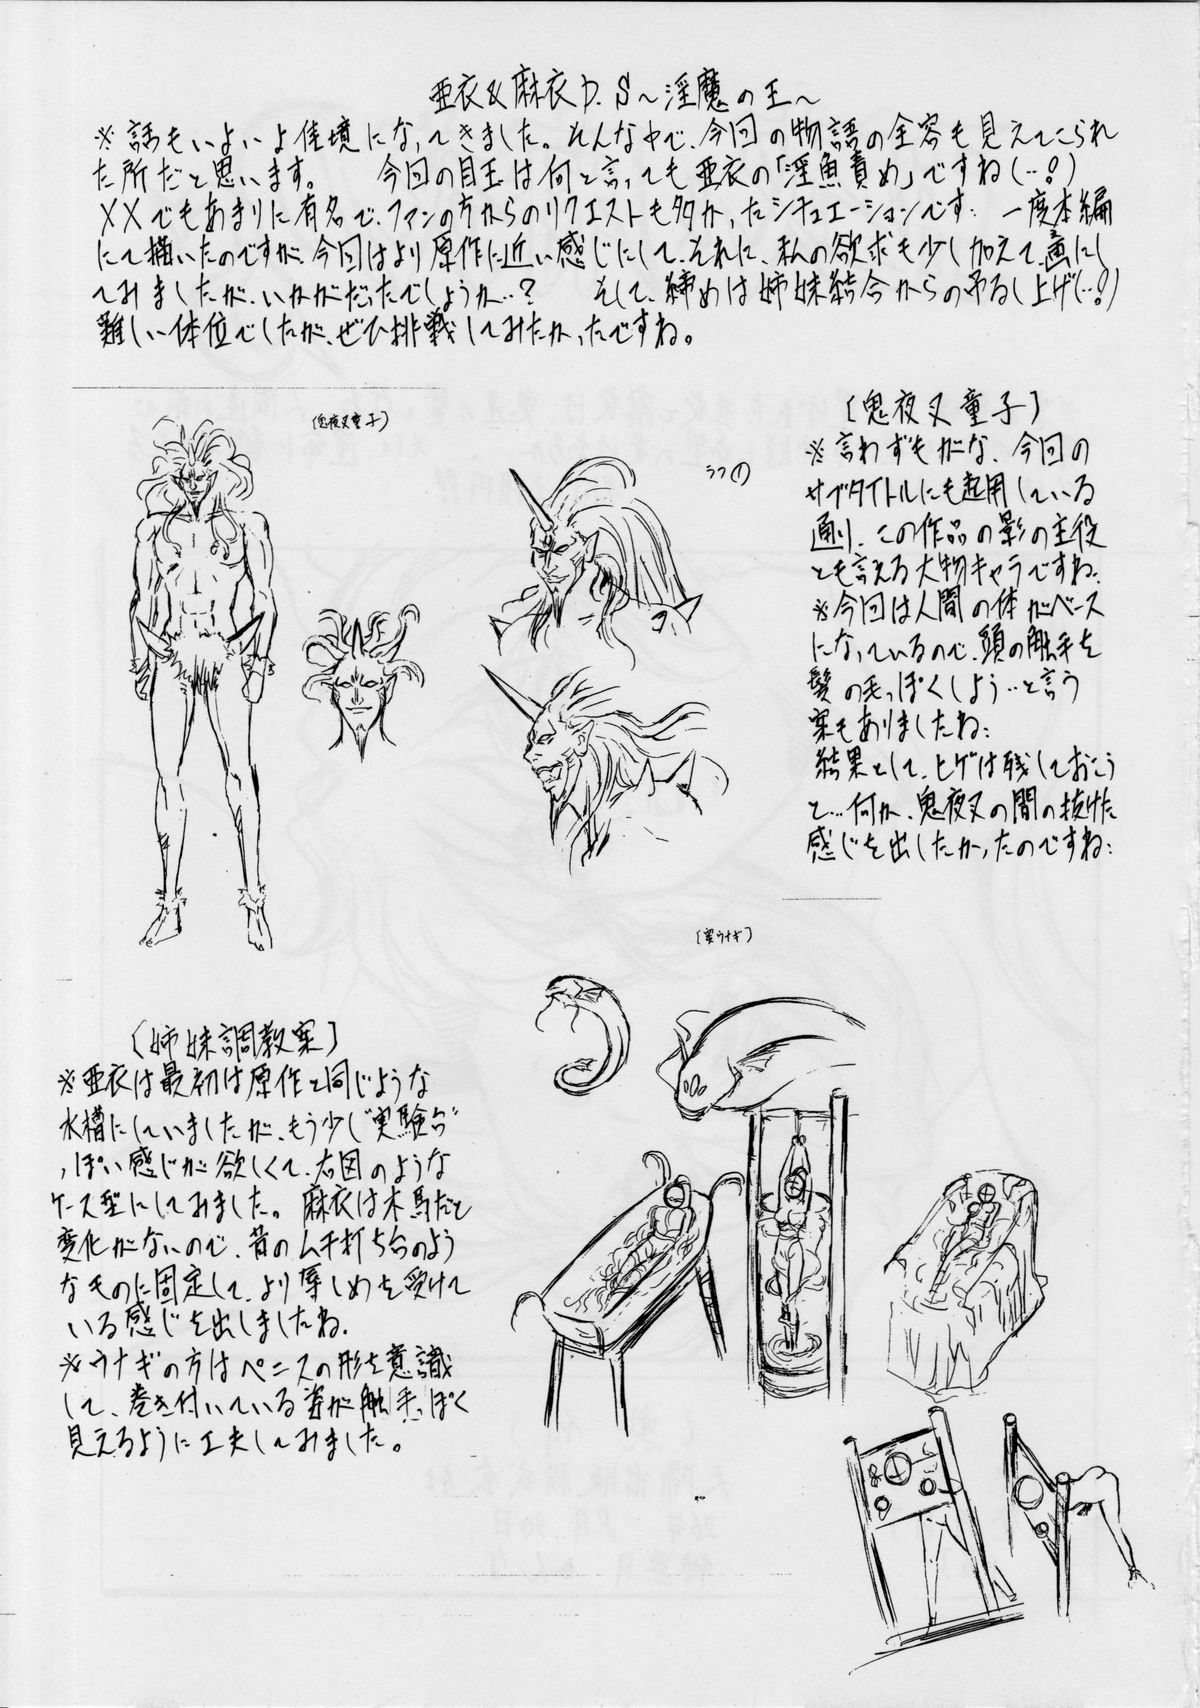 亜衣&麻衣D.S～淫魔の王～
※話もいよいよ佳境になってきました。そんな中で、今回の物語の全容も見えてこられ
た所だと思います。 今回の目玉は何と言っても亜衣の「淫魚責め」ですね(…!)
XXでもあまりに有名で、ファンの方からのリクエストも多かったシチュエーションです… 一度本編
にて描いたのですが、今回はより原作に近い感じにして、それに、私の欲求も少し加えて、画にし
てみましたが、いかがだったでしょうか…? そして、締めは姉妹結合からの吊るし上げ(…!)
難しい体位でしたが、ぜひ挑戦してみたかったですね。
(鬼夜叉童子)
ラフ①
〔鬼夜叉童子〕
※言わずもがな、今回の
サブタイトルにも起用している
通り、この作品の影の主役
とも言える大物キャラですね。
※今回は人間の体がベース
になっているので、頭の触手を
髪の毛っぽくしよう…と言う
案もありましたね…
結果として、ヒゲは残しておこう
と…何か、鬼夜叉の間の抜けた
感じを出したかったのですね…
ウナギ〕
〔姉妹調教案〕
※亜衣は最初は原作と同じような
水槽にしていましたが、もう少し"実験台"
っぽい感じが欲しくて、右図のような
ケース型にしてみました。麻衣は木馬だと
変化がないので、昔のムチ打ち台のよう
なものに固定して、より辱しめを受けて
いる感じを出しましたね。
※ウナギの方はペニスの形を意識
して、巻き付いている姿が触手っぽく
見えるように工夫してみました。